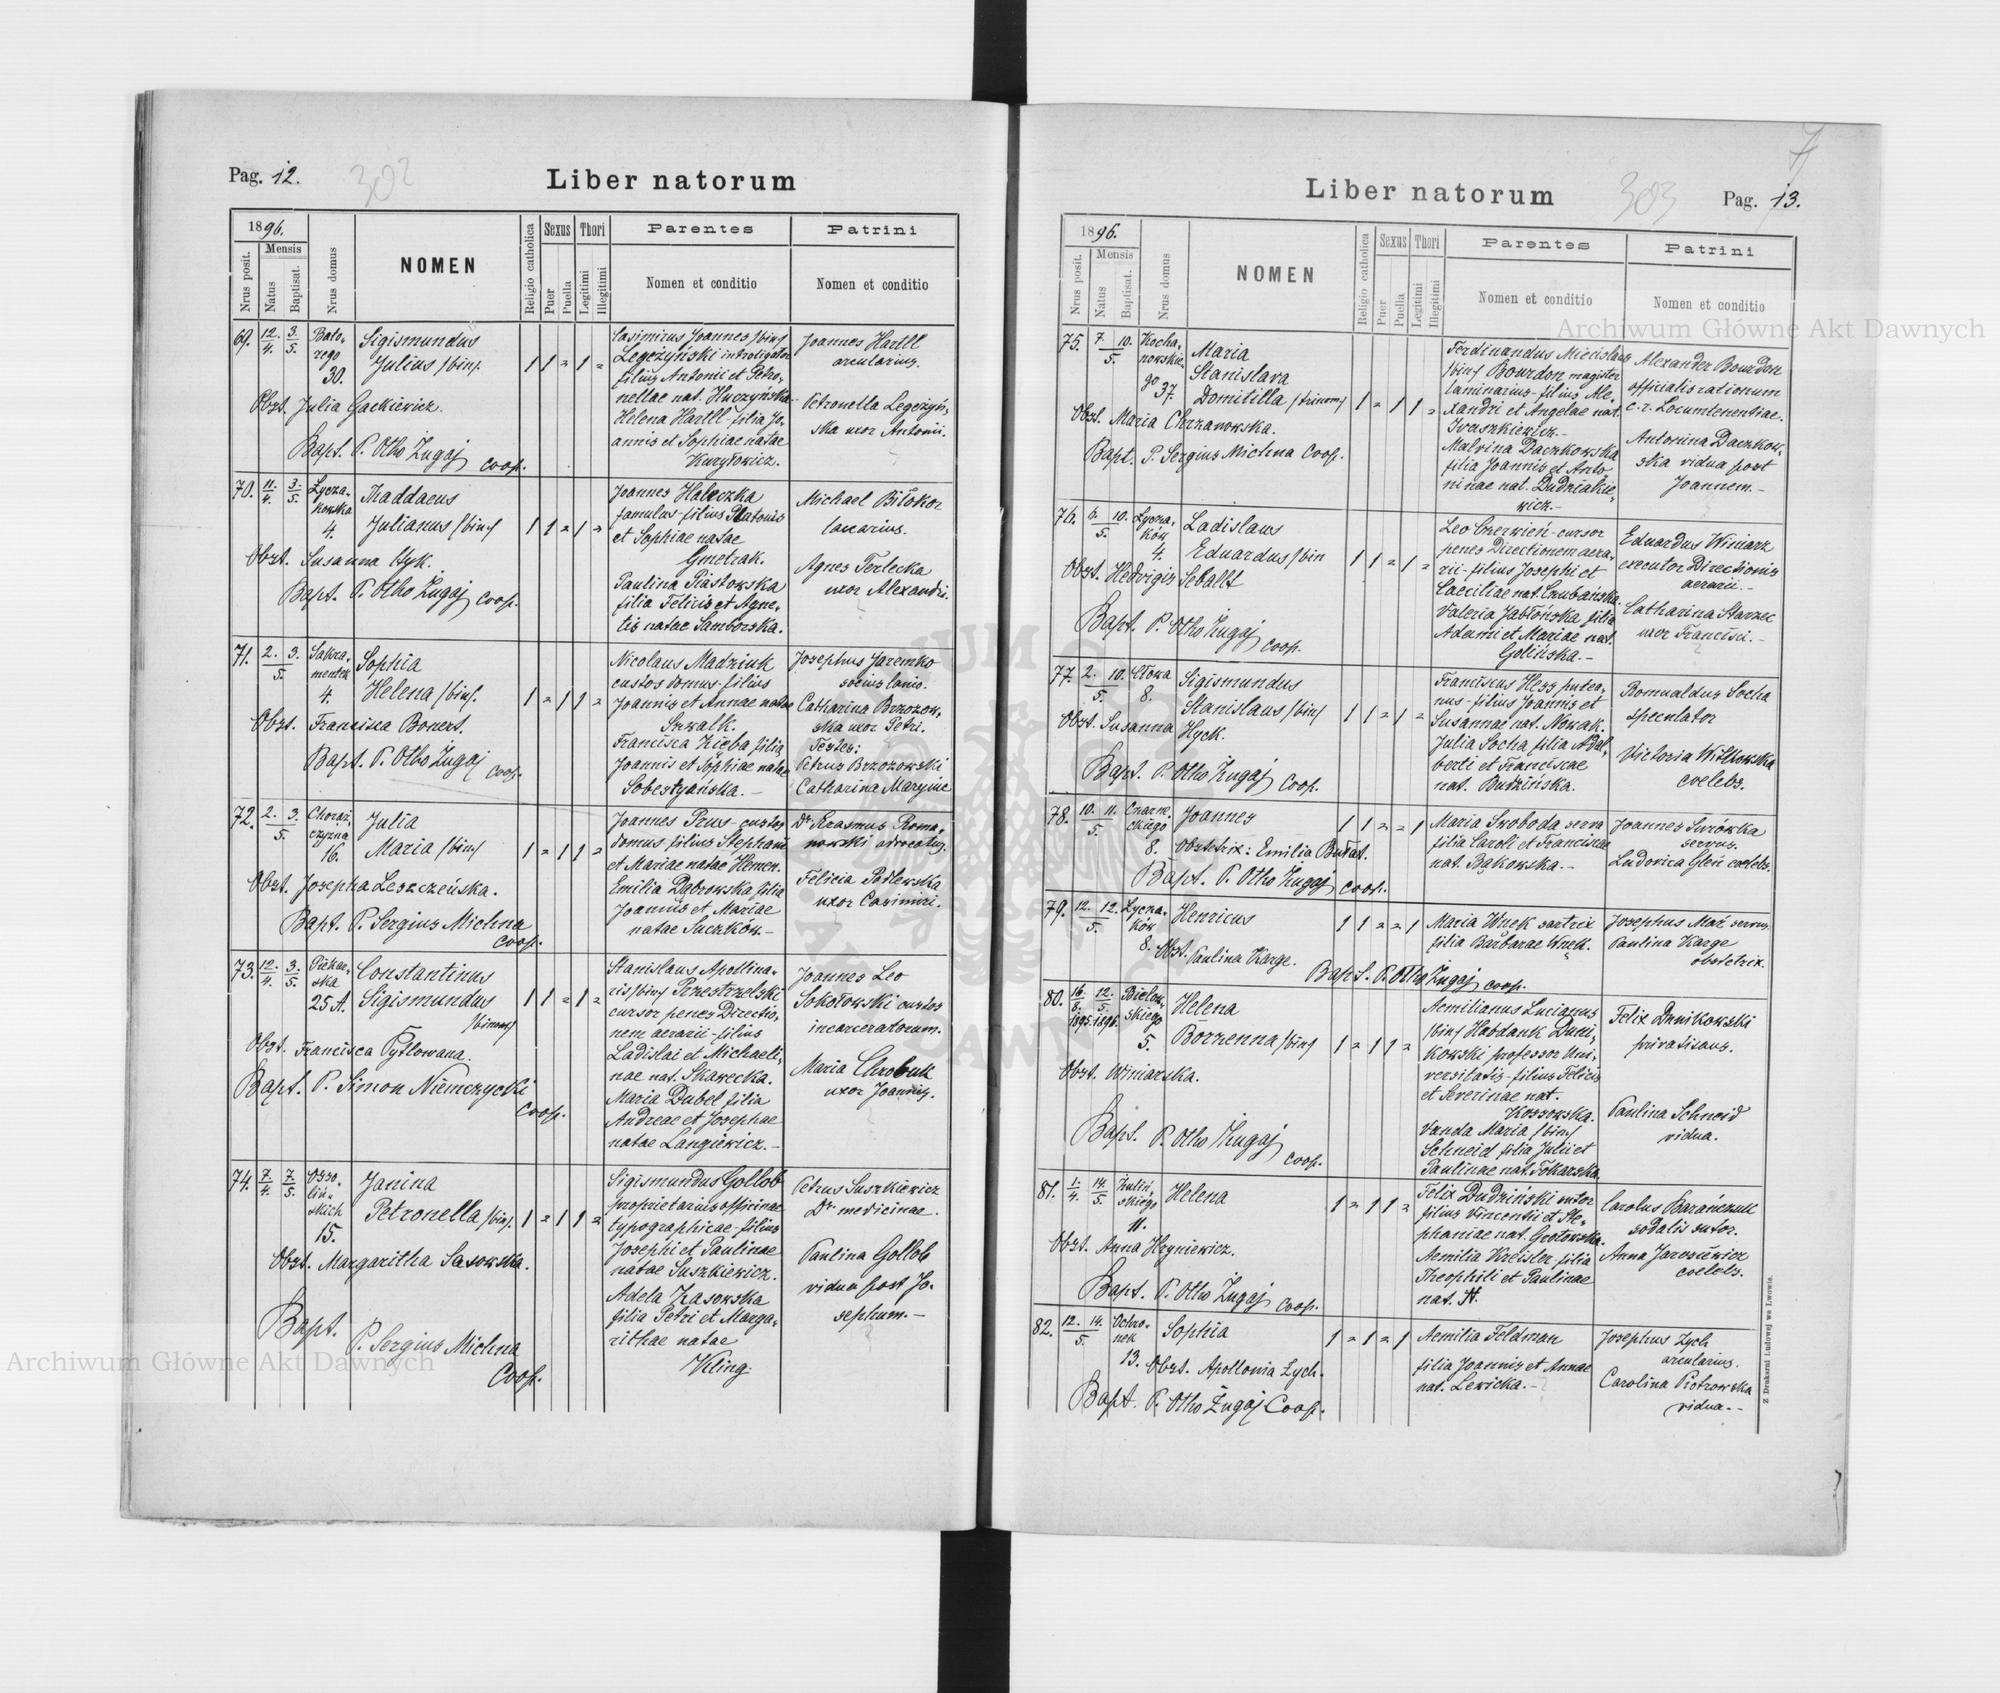 Pag. 12.
302
Liber natorum
1896.
Mensis
Nrus posit.
Natus
Baptisat.
Nrus domus
NOMEN
Religio catholica
Sexus
Puer
Puella
Thori
Legitimi
Illegitimi
Parentes
Nomen et conditio
Patrini
Nomen et conditio
69. 12/4. 3/5. Bato-
rego
30.
Sigismundus
Julius /bin/.
1 1 = 1 =
Obst. Julia Gackiewicz.
Bapt. P. Otho Żugaj coop.
Casimirus Joannes /bin/
Legeżyński introligator
filius Antonii et Petro-
nellae nat. Huczyńska.-
Helena Hartll - filia Jo-
annis et Sophiae natae
Kuryłowicz.
Joannes Hartll
arcularius.
Petronella Legeżyń-
ska uxor Antonii.
70. 11/4. 3/5. Łycza-
kowska
4.
Thaddaeus
Julianus /bin/
1 1 = 1 =
Obst. Susanna Hyk.
Bapt. P. Otho Żugaj coop.
Joannes Haleczka
famulus - filius Platonis
et Sophiae natae
Gmetrak.
Paulina Piastowska
filia Felicis et Agne-
tis natae Samborska.
Michael Biłokor
laccarius.
Agnes Terlecka
uxor Alexandri.
71. 2. 3./5. Sakra-
mentek
4.
Sophia
Helena /bin/.
1 = 1 1 =
Obst. Francisca Bonert.
Bapt. P. Otho Żugaj coop.
Nicolaus Madziuk
custos domus - filius
Joannis et Annae natae
Szwalk.
Francisca Zięba filia
Joannis et Sophiae natae
Sobestyańska. -
Josephus Jaremko
socius lanio.
Catharina Brzozow-
ska uxor Petri.
Testes:
Petrus Brzozowski
Catharina Marynic
72. 2. 3./5. Chorąż-
czyzna
16.
Julia
Maria /bin/
1 = 1 1 =
Obst. Josepha Leszczeńska.
Bapt. P. Sergius Michna
coop.
Joannes Prus - custos
domus filius Stephani
et Mariae natae Hemen.
Emilia Dąbrowska filia
Joannis et Mariae
natae Suczków. -
Dr. Erasmus Roma-
nowski advocatus.
Felicia Podlewska
uxor Casimiri.
73. 12/4. 3/5. Piekar-
ska
25 A.
Constantinus
Sigismundus
/binom/
1 1 = 1 =
Obst. Francisca Pytlowana.
Bapt. P. Simon Niemczycki
coop.
Stanislaus Apollina-
ris /bin/ Przestrzelski
cursor penes Directio-
nem aerarii - filius
Ladislai et Michaeli-
nae nat. Skawecka.
Maria Dubel filia
Andreae et Josephae
natae Langiewicz. -
Joannes Leo
Sokołowski custos
incarceratorum.
Maria Chrobuk
uxor Joannis.
74. 7/4. 7/5. Osso-
liń-
skich
15.
Janina
Petronella /bin/.
1 = 1 1 =
Obst. Margaritha Sasowska.
Bapt.
P. Sergius Michna
Coop.
Sigismundus Gollob
proprietarius officinae
typographicae - filius
Josephi et Paulinae
natae Suszkiewicz.
Adela Zasowska
filia Petri et Marga-
rithae natae
Kling.
Petrus Suszkiewicz
Dr. medicinae.
Paulina Gollob
vidua post Jo-
sephum. -
Liber natorum
303
Pag. 13.
1896.
Mensis
Nrus posit.
Natus
Baptisat.
Nrus domus
NOMEN
Religio catholica
Sexus
Puer
Puella
Thori
Legitimi
Illegitimi
Parentes
Nomen et conditio
Patrini
Nomen et conditio
75. 7. 10./5. Kocha-
nowskie-
go 37.
Maria
Stanislava
Domitilla /trinom/
1 = 1 1 =
Obst. Maria Chrzanowska.
Bapt. P. Sergius Michna Coop.
Ferdinandus Miecislaus
/bin/ Bourdon magister
laminarius - filius Ale-
xandri et Angelae nat.
Iwaszkiewicz. -
Malvina Daczkowska
filia Joannis et Anto
ninae nat. Dudziakie-
wicz. -
Alexander Bourdon
officialis rationum
c. r. Locumtenentiae.
Antonina Daczkow-
ska vidua post
Joannem. -
76. 10./5. Łycza-
ków
4.
Ladislaus
Eduardus /bin
1 1 = 1 =
Obst. Hedvigis Seballt
Bapt. P. Otho Żugaj
coop.
Leo Czerwień - cursor
penes Directionem aera-
rii - filius Josephi et
Caeciliae nat. Czubańska.
Valeria Jabłońska filia
Adami et Mariae nat.
Golińska. -
Eduardus Winiarz
executor Directionis
aerarii. -
Catharina Starzec
uxor Francisci. -
77. 2. 10./5. Cłowa
8.
Sigismundus
Stanislaus /bin/
1 1 = 1 =
Obst. Susanna Hyck.
Bapt. P. Otho Żugaj coop.
Franciscus Hess putea-
nus - filius Joannis et
Susannae nat. Nowak.
Julia Socha filia Adal-
berti et Franciscae
nat. Budzińska.
Romualdus Socha
speculator
Victoria Witkowska
coelebs.
78. 10. 11./5. Czarne-
ckiego
8.
Joannes
1 1 = = 1
Obstetrix: Emilia Bułat.
Bapt. P. Otho Żugaj coop.
Maria Swoboda serva
filia Caroli et Franciscae
nat. Bąkowska. -
Joannes Surówka
servus.
Ludovica Gleń coelebs.
79. 12. 12./5. Łycza-
ków
8.
Henricus
1 1 = = 1
Obst. Paulina Karge.
Bapt. P. Otho Żugaj coop.
Maria Wnęk sartrix
filia Barbarae Wnęk.
Josephus Maź servus
Paulina Karge
obstetrix.
80. 16/8. 1895. 12/5. 1896. Bielow-
skiego
5.
Helena
Bożzenna /bin/
1 = 1 1 =
Obst. Winiarska.
Bapt. P. Otho Żugaj
coop.
Aemilianus Lucianus
/bin/ Habdank Duni-
kowski professor Uni-
versitatis - filius Felicis
et Severinae nat.
Kossowska.
Vanda Maria /bin/
Schneid filia Julii et
Paulinae nat. Tokarska.
Felix Dunikowski
privatisans.
Paulina Schneid
vidua.
81. 1/4. 14/5. Żuliń-
skiego
11.
Helena
1 = 1 1 =
Obst. Anna Hryniewicz.
Bapt. P. Otho Żugaj coop.
Felix Dudziński sutor
filius Vincentii et Ste-
phaniae nat. Grotowska.
Aemilia Kreisler filia
Theophili et Paulinae
nat. N.
Carolus Barańczuk
sodalis sutor.
Anna Jarosiewicz
coelebs.
82. 12. 14./5. Ochro-
nek
13.
Sophia
1 = 1 = 1
Obst. Apollonia Zych.
Bapt. P. Otho Żugaj Coop.
Aemilia Feldman
filia Joannis et Annae
nat. Lewicka. -
Josephus Zych
arcularius.
Carolina Piotrowska
vidua. -
Z Drukarni Ludowej we Lwowie.
Archiwum Główne Akt Dawnych
Archiwum Główne Akt Dawnych